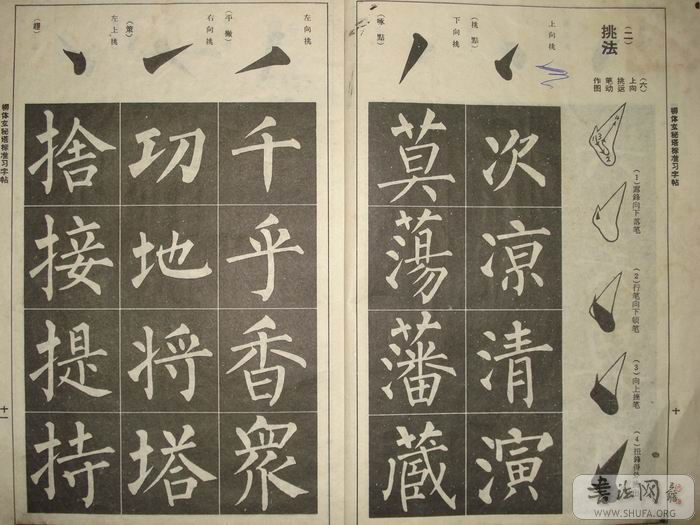 柳体玄秘塔标准习字帖
十
(二)
挑法
(六)
上向
挑运
笔动
作图
(1)露鋒向下落笔
(2)行笔向下顿笔
(3)向上挫笔
上向挑
(挑點)
下向挑
(啄點)
次凉清演
莫蕩藩蔵
左向挑
(平撇)
右向挑
(策)
左上挑
(趯)
千乎香眾
功地将塔
捨接提持
柳体玄秘塔标准习字帖
十一
書法网
WWW.SHUFA.ORG